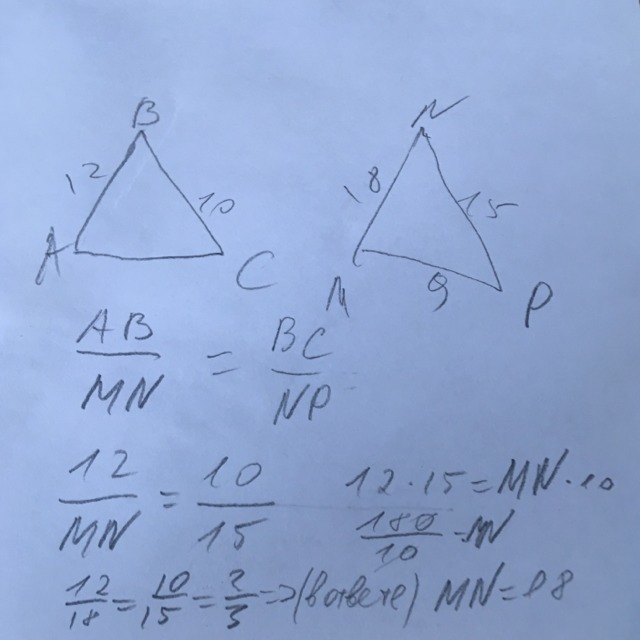 B N
12 10 18 15
A C M 9 P
AB/MN = BC/NP
12/MN = 10/15 12·15=MN·10
180/10 = MN
12/18 = 10/15 = 2/3 => (в ответе) MN=18